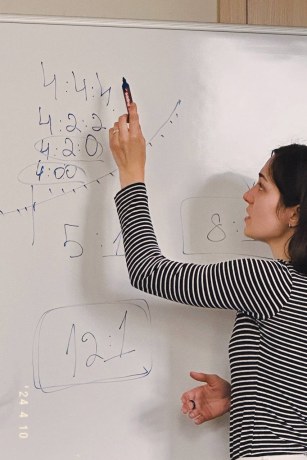 4:4:4
4:2:2
4:2:0
4:00
5:1
8:
12:1
'24 4 10